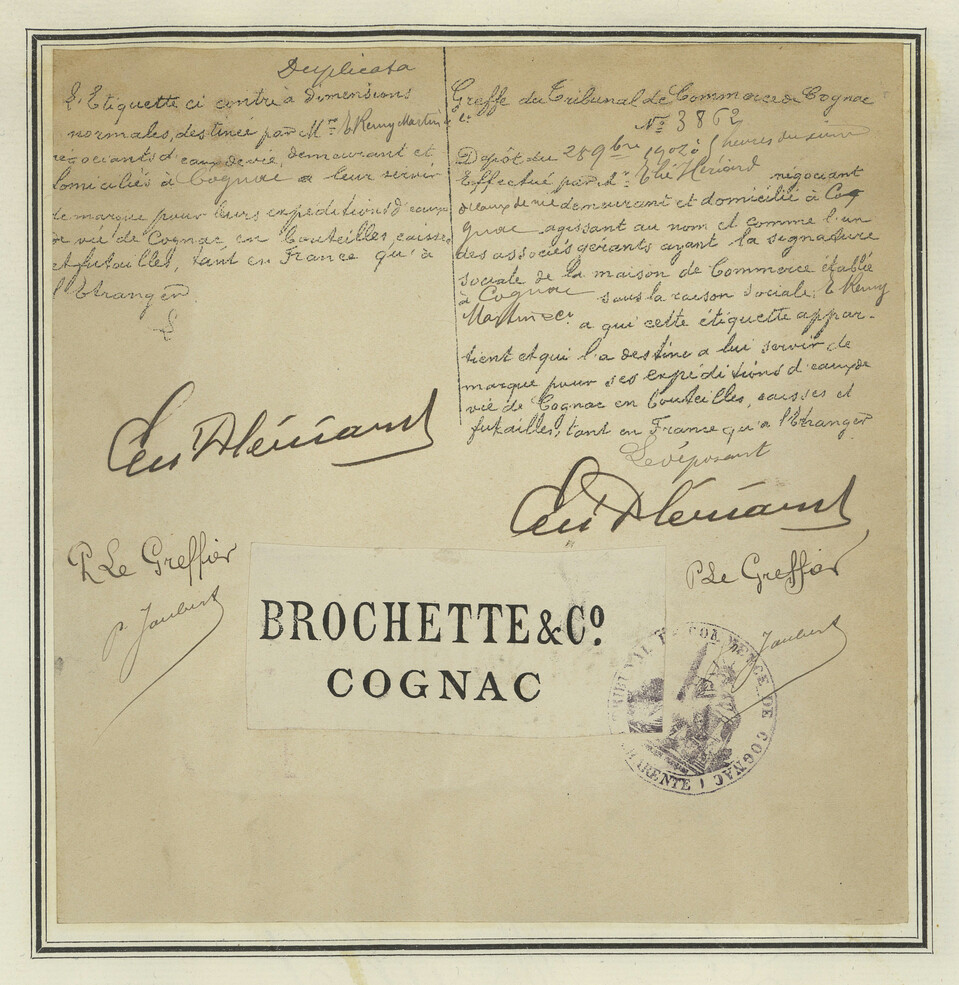 Duplicata
L'Etiquette ci contre à dimensions
normales, destinée par Mrs E Remy Martin &
Cie
négociants d'eaux de vie, demeurant et
domiciliés à Cognac a leur servir
de marque pour leurs expéditions d'eaux
de vie de Cognac en bouteilles, caisses
et futailles, tant en France qu'à
l'Etranger
Greffe du Tribunal de Commerce de Cognac
No 3862
Dépôt du 28 9bre 1902 à 5 heures du soir
Effectué par Mr Elié Hériard négociant
d'eaux de vie demeurant et domicilié à Cog
gnac agissant au nom et comme l'un
des associés gérants ayant la signature
sociale de la maison de Commerce établie
à Cognac sous la raison sociale; E Remy
Martin & Cie a qui cette étiquette appar-
tient et qui l'a destine a lui servir de
marque pour ses expéditions d'eaux de
vie de Cognac en bouteilles, caisses et
futailles, tant en France qu'a l'Etranger
Le déposant
P. Le Greffier
p. Jaubert
P Le Greffier
Jaubert
BROCHETTE & Co.
COGNAC
TRIBUNAL DE COMMERCE DE COGNAC
CHARENTE